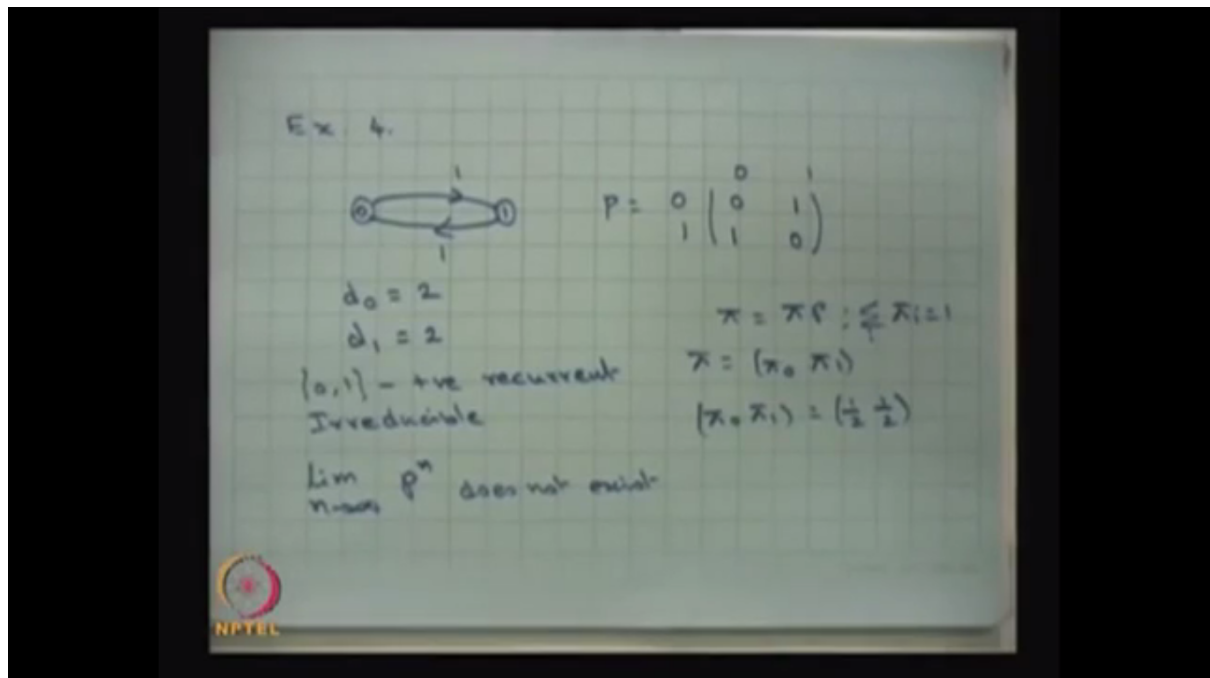 Ex. 4.
1
0 1
1
P = 0 1
0 ( 0 1 )
1 ( 1 0 )
d₀ = 2
d₁ = 2
{0,1} - +ve recurrent
Irreducible
Lim n→∞ Pⁿ does not exist
π = πP ; Σᵢ πᵢ = 1
π = (π₀ π₁)
(π₀ π₁) = (½ ½)
NPTEL